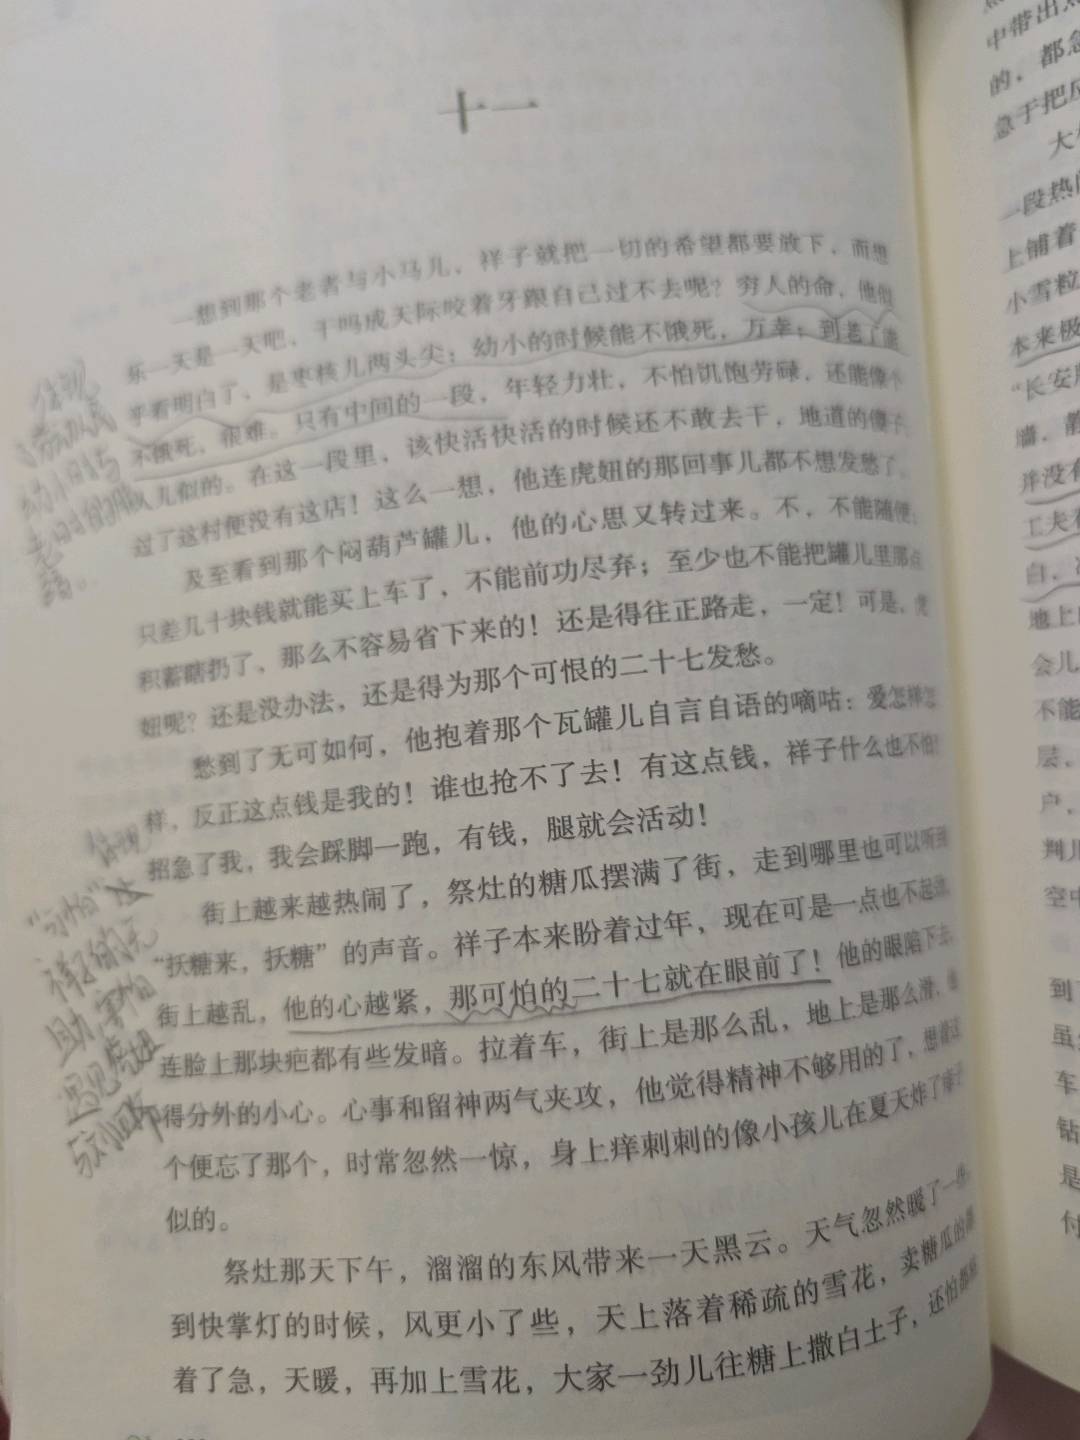 十一
一想到那个老者与小马儿，祥子就把一切的希望都要放下，而想
乐一天是一天吧，干吗成天际咬着牙跟自己过不去呢？穷人的命，他似
乎看明白了，是枣核儿两头尖：幼小的时候能不饿死，万幸；到老了能
不饿死，很难。只有中间的一段，年轻力壮，不怕饥饱劳碌，还能像个
人儿似的。在这一段里，该快活快活的时候还不敢去干，地道的傻子
过了这村便没有这店！这么一想，他连虎妞的那回事儿都不想发愁了。
及至看到那个闷葫芦罐儿，他的心思又转过来。不，不能随便；
只差几十块钱就能买上车了，不能前功尽弃；至少也不能把罐儿里那点
积蓄瞎扔了，那么不容易省下来的！还是得往正路走，一定！可是，虎
妞呢？还是没办法，还是得为那个可恨的二十七发愁。
愁到了无可如何，他抱着那个瓦罐儿自言自语的嘀咕：爱怎样怎
样，反正这点钱是我的！谁也抢不了去！有这点钱，祥子什么也不怕！
招急了我，我会跺脚一跑，有钱，腿就会活动！
街上越来越热闹了，祭灶的糖瓜摆满了街，走到哪里也可以听到
“扷糖来，扷糖”的声音。祥子本来盼着过年，现在可是一点也不起劲，
街上越乱，他的心越紧，那可怕的二十七就在眼前了！他的眼陷下去，
连脸上那块疤都有些发暗。拉着车，街上是那么乱，地上是那么滑，他
得分外的小心。心事和留神两气夹攻，他觉得精神不够用的了，想着这
个便忘了那个，时常忽然一惊，身上痒刺刺的像小孩儿在夏天炸了痱子
似的。
祭灶那天下午，溜溜的东风带来一天黑云。天气忽然暖了一些。
到快掌灯的时候，风更小了些，天上落着稀疏的雪花，卖糖瓜的都
着了急，天暖，再加上雪花，大家一劲儿往糖上撒白土子，还怕都
体现
劳动人民
幼小时与
老时的
体现
“可怕”
祥子的无
助，害怕
遇见虎妞
中带出
的，都急
急于把
一段热
上铺着
小雪粒
本来极
“长安
墙，
并没有
工夫
白，
地上
会儿
不能
层，
户，
判儿
空中
到
虽
车
钻
是
付